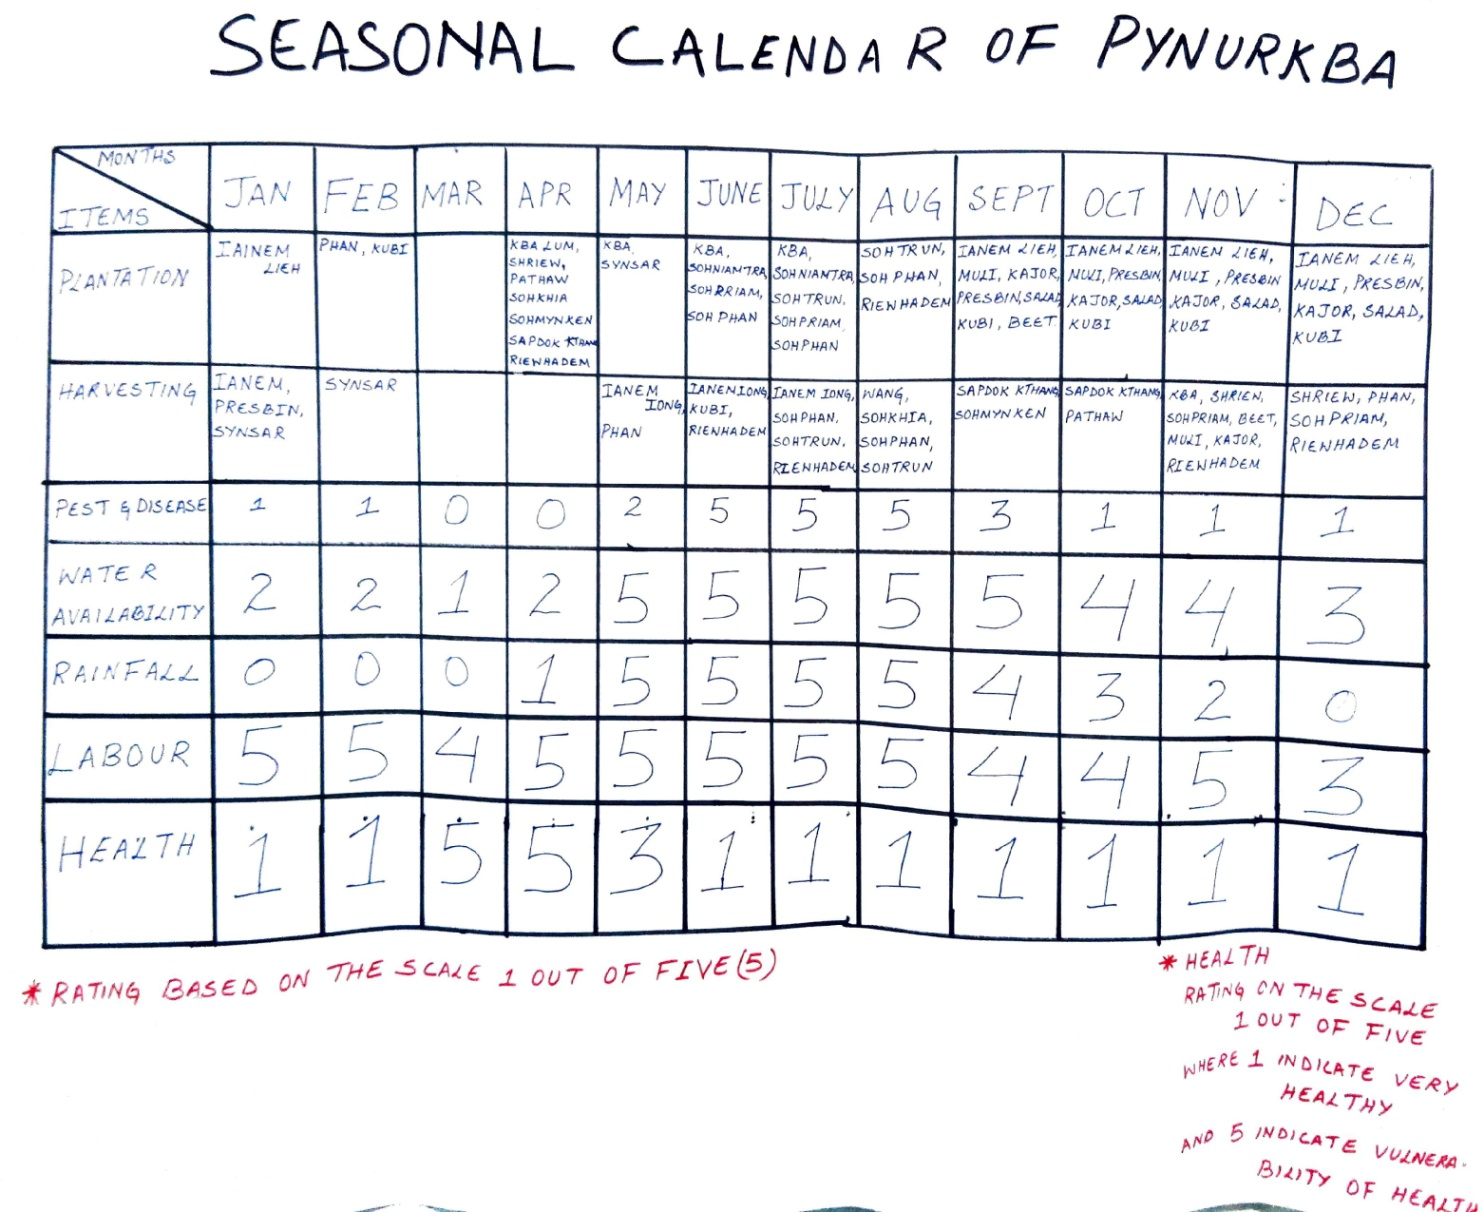 SEASONAL CALENDAR OF PYNURKBA
MONTHS
ITEMS
JAN
FEB
MAR
APR
MAY
JUNE
JULY
AUG
SEPT
OCT
NOV
DEC
PLANTATION
IAINEM
LIEH
PHAN, KUBI
KBA LUM,
SHRIEW,
PATHAW
SOHKHIA
SOHMYNKEN
SAPDOK KTHANG
RIEWHADEM
KBA,
SYNSAR
KBA,
SOHNIAMTRA,
SOHRRIAM,
SOH PHAN
KBA,
SOHNIANTRA,
SOHTRUN,
SOHPRIAM,
SOHPHAN
SOHTRUN,
SOH PHAN,
RIENHADEM
IANEM LIEH,
MULI, KAJOR,
PRESBIN, SALAD,
KUBI, BEET
IANEM LIEH,
MULI, PRESBIN
KAJOR, SALAD,
KUBI
IANEM LIEH,
MULI, PRESBIN
KAJOR, SALAD,
KUBI
IANEM LIEH,
MULI, PRESBIN,
KAJOR, SALAD,
KUBI
HARVESTING
IANEM,
PRESBIN,
SYNSAR
SYNSAR
IANEM
IONG,
PHAN
IANEN IONG,
KUBI,
RIENHADEM
IANEM IONG,
SOHPHAN,
SOHTRUN,
RIENHADEM
WANG,
SOHKHIA,
SOHPHAN,
SOHTRUN
SAPDOK KTHANG,
SOHMYNKEN
SAPDOK KTHANG,
PATHAW
KBA, SHRIEN,
SOHPRIAM, BEET,
MULI, KAJOR,
RIENHADEM
SHRIEW, PHAN,
SOHPRIAM,
RIENHADEM
PEST & DISEASE 1 1 0 0 2 5 5 5 3 1 1 1
WATER
AVAILABILITY 2 2 1 2 5 5 5 5 5 4 4 3
RAINFALL 0 0 0 1 5 5 5 5 4 3 2 0
LABOUR 5 5 4 5 5 5 5 5 4 4 5 3
HEALTH 1 1 5 5 3 1 1 1 1 1 1 1
* RATING BASED ON THE SCALE 1 OUT OF FIVE (5)
* HEALTH
RATING ON THE SCALE
1 OUT OF FIVE
WHERE 1 INDICATE VERY
HEALTHY
AND 5 INDICATE VULNERA-
BILITY OF HEALTH